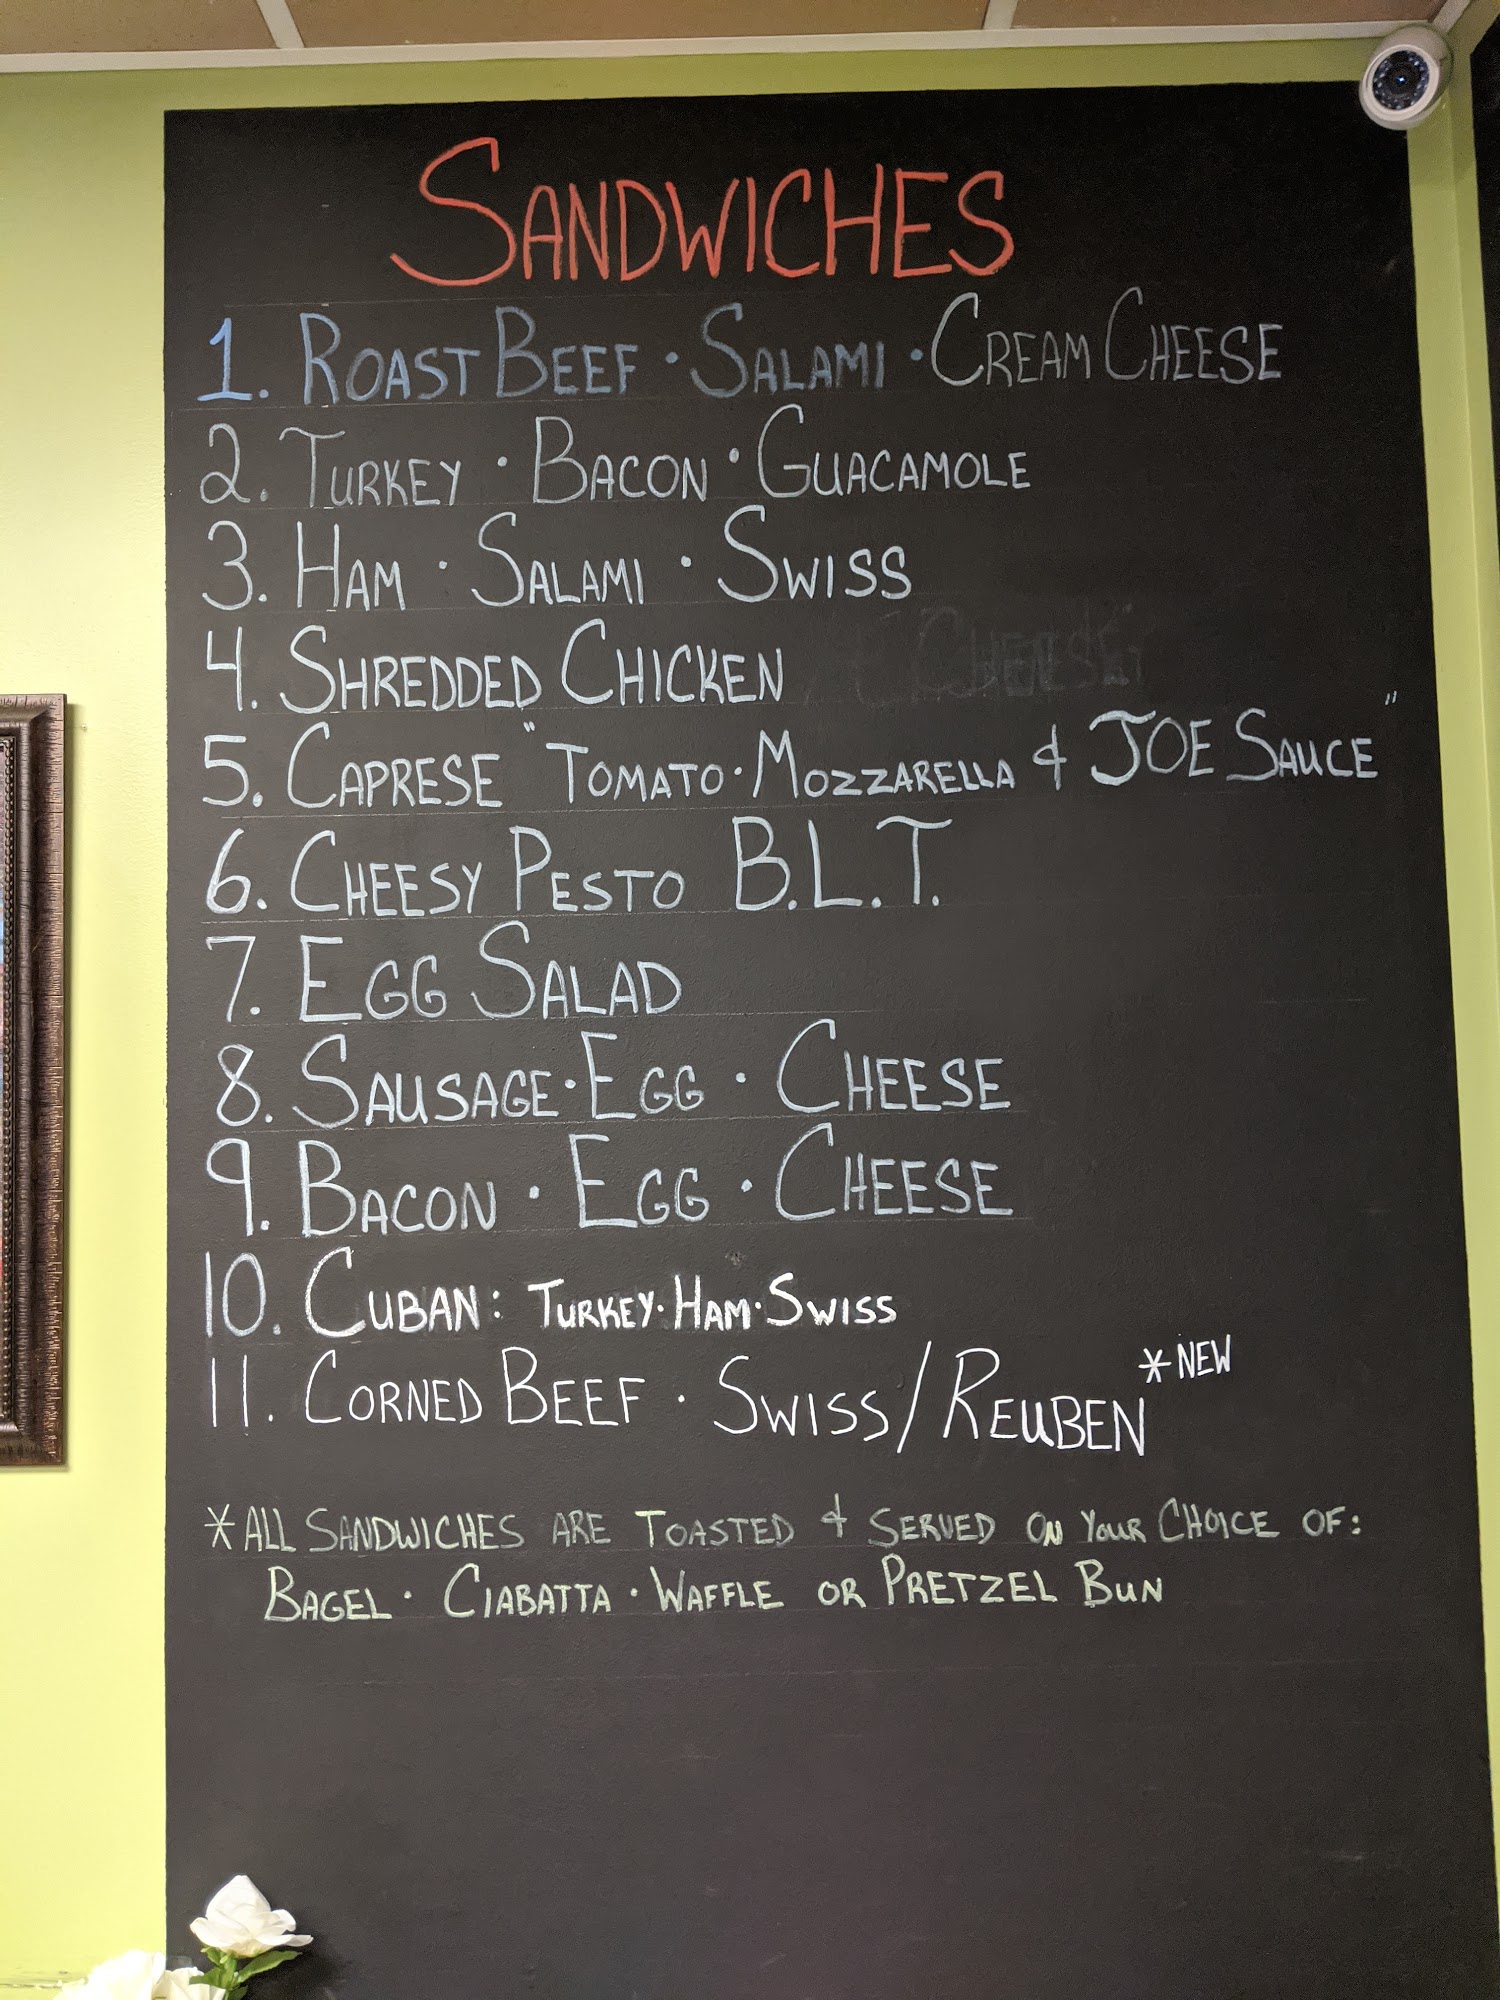 SANDWICHES
1. ROAST BEEF · SALAMI · CREAM CHEESE
2. TURKEY · BACON · GUACAMOLE
3. HAM · SALAMI · SWISS
4. SHREDDED CHICKEN
5. CAPRESE "TOMATO · MOZZARELLA & JOE SAUCE"
6. CHEESY PESTO B.L.T.
7. EGG SALAD
8. SAUSAGE · EGG · CHEESE
9. BACON · EGG · CHEESE
10. CUBAN: TURKEY · HAM · SWISS
11. CORNED BEEF · SWISS/REUBEN *NEW
*ALL SANDWICHES ARE TOASTED & SERVED ON YOUR CHOICE OF:
BAGEL · CIABATTA · WAFFLE OR PRETZEL BUN